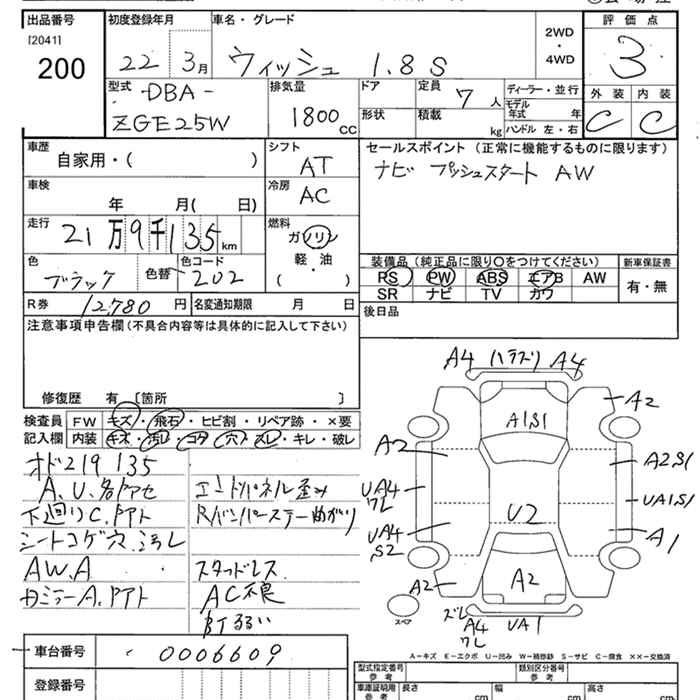 出品番号
[2041]
200
初度登録年月
22 3月
車名・グレード
ウィッシュ 1.8 S
2WD
・
4WD
評価点
3
外装 内装
C C
型式
-DBA-
ZGE25W
排気量
1800cc
ドア
形状
定員 7人
積載 kg
ディーラー・並行
モデル年式 年
ハンドル 左・右
車歴
自家用・( )
シフト
AT
セールスポイント (正常に機能するものに限ります)
ナビ プッシュスタート AW
車検
年 月( 日)
冷房
AC
走行
21万9千135km
燃料
ガソリン
軽・油
( )
色
ブラック
色替
色コード
202
装備品(純正品に限り○をつけてください)
RS PW ABS エアB AW
SR ナビ TV カワ
新車保証書
有・無
R券 12780円
名変通知期限 月 日
後日品
注意事項申告欄(不具合内容等は具体的に記入して下さい)
修復歴 有 [箇所 ]
検査員記入欄
FW キズ・飛石・ヒビ割・リペア跡・×要
内装 キズ・汚レ・コゲ・穴・スレ・キレ・破レ
オド219135
A.U.各所アセ
下廻りC.アト
シートコゲ穴.汚レ
AW.A
カミラーA.アト
エンドパネル歪み
Rバンパーステー曲がり
スタッドレス
AC不良
BT弱い
A4 ハラズリ A4
A2
A1S1
A2
A2S1
UA4
ワレ
UA1S1
UA4
S2
U2
A1
A2
A2
スペア
ズレ
A4
ワレ
UA1
A-キズ E-エクボ U-凹み W-補修跡 S-サビ C-腐食 ××-交換済
車台番号
-0006609
登録番号
型式指定番号
参考
類別区分番号
参考
車庫証明用
参考
長さ cm
幅 cm
高さ cm